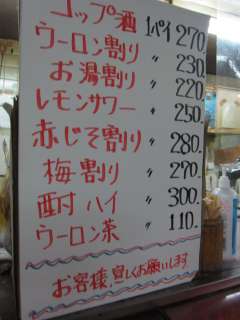 コップ酒 1パイ 270.
ウーロン割り 〃 230.
お湯割り 〃 220.
レモンサワー 〃 250.
赤じそ割り 〃 280.
梅割り 〃 270.
酎ハイ 〃 300.
ウーロン茶 〃 110.
お客様,宜しくお願いします